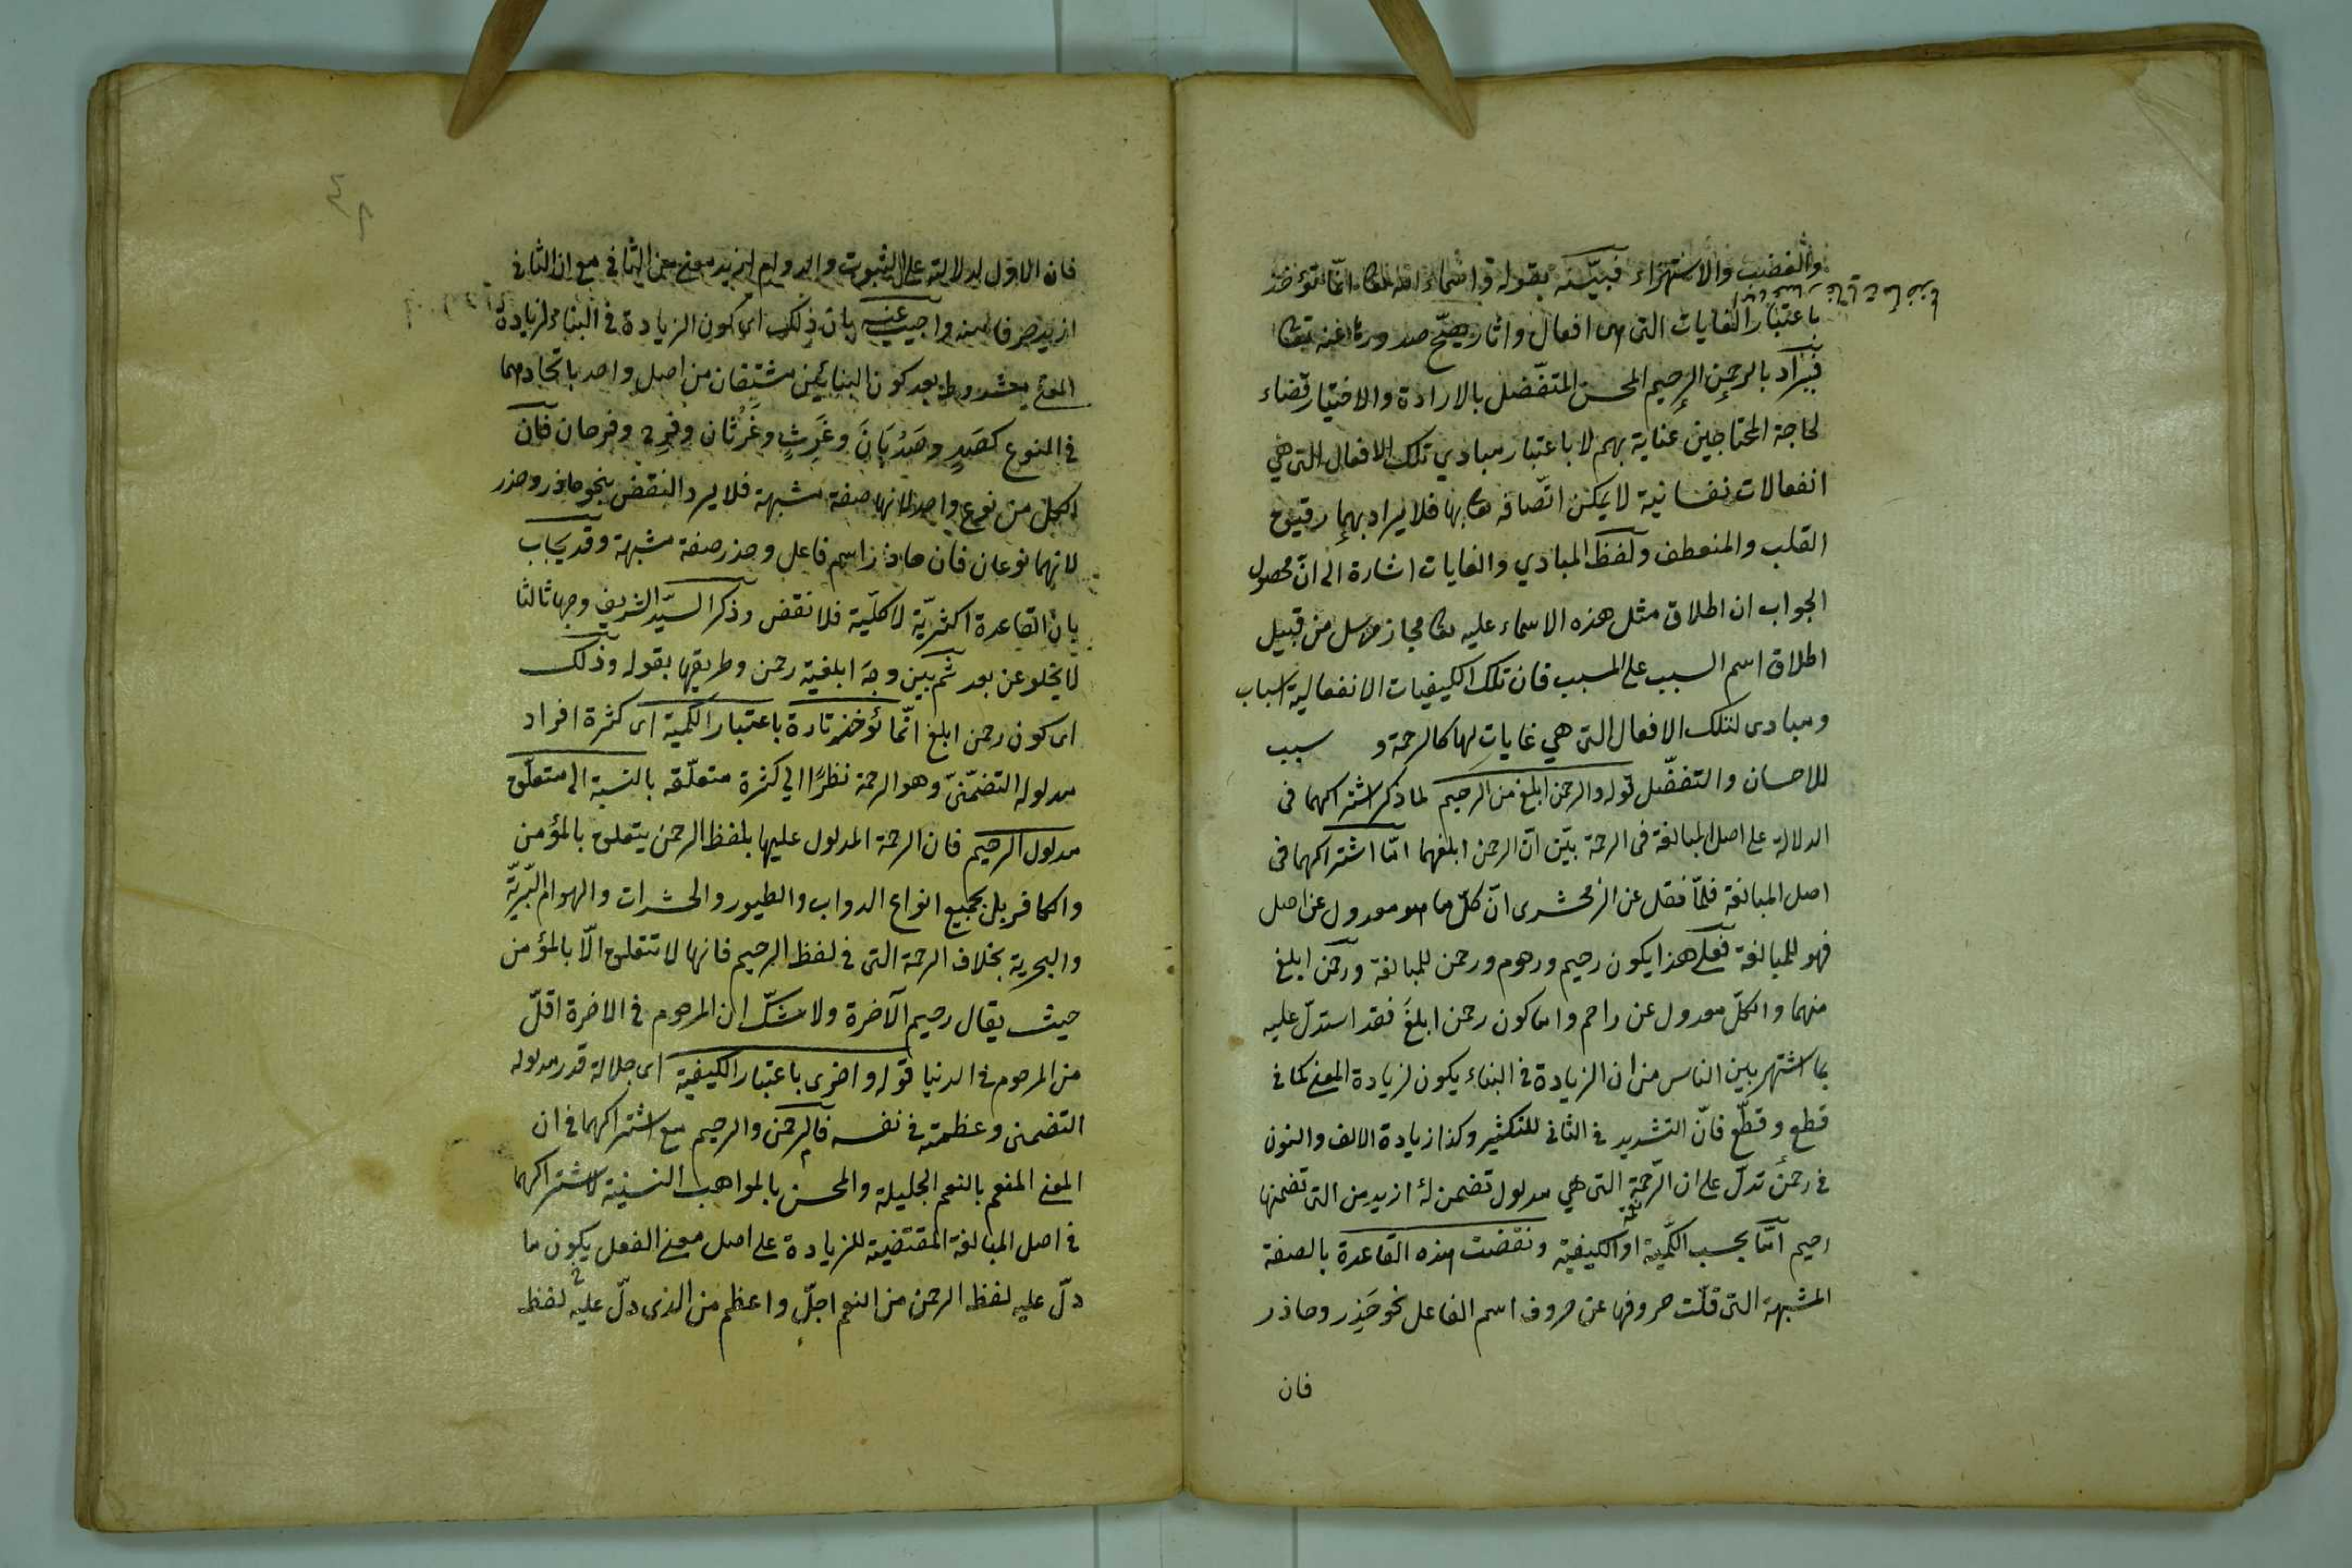 والغضب والاستهزاء فبيّنه بقوله واسماء الله تعا انّما تؤخذ
باعتبار الغايات التى هى افعال واثار يصحّ صدورها عنه تعا
فيراد بالرحمن الرحيم المحسن المتفضّل بالارادة والاختيار قضاء
لحاجة المحتاجين عناية بهم لا باعتبار مبادي تلك الافعال التى هي
انفعالات نفسانية لا يمكن اتّصافه تعا بها فلا يراد بهما رقيق
القلب والمنعطف ولفظ المبادي والغايات اشارة الى انّ محصول
الجواب ان اطلاق مثل هذه الاسماء عليه تعا مجاز مرسل من قبيل
اطلاق اسم السبب على المسبب فان تلك الكيفيات الانفعالية اسباب
ومبادى لتلك الافعال التى هي غايات لها كالرحمة و سبب
للاحسان والتفضّل قوله والرحمن ابلغ من الرحيم لما ذكر اشتراكهما فى
الدلالة على اصل المبالغة فى الرحمة بيّن انّ الرحمن ابلغهما امّا اشتراكهما فى
اصل المبالغة فلمّا نقل عن الزمخشرى انّ كلّ ما هو معدول عن اصل
فهو للمبالغة فعلى هذا يكون رحيم ورحوم ورحمن للمبالغة ورحمن ابلغ
منهما والكلّ معدول عن راحم واما كون رحمن ابلغَ فقد استدلّ عليه
بما اشتهر بين الناس من ان الزيادة فى البناء يكون لزيادة المعنى كما فى
قطع وقطّع فانّ التشديد فى الثانى للتكثير وكذا زيادة الالف والنون
فى رحمن تدلّ على ان الرّحمة التى هي مدلول تضمن لهُ ازيد من التى تضمنها
رحيم امّا بحسب الكّمية او الكيفية ونقضت هذه القاعدة بالصفة
المشبهة التى قلّت حروفها عن حروف اسم الفاعل نحو حَذِر وحاذر
فان
فان الاوّل لدلالته على الثبوت والدوام ازيد معنى من الثانى مع ان الثانى
ازيد حرفا منه واجيب عنه بان ذلك اى كون الزيادة فى البناء لزيادة
المعنى مشروط بعد كون البنائين مشتقان من اصل واحد باتحادهما
فى النوع كصَدٍ وصَدْيَانَ وغَرِثٍ وغَرْثان وفرِح وفرحان فان
الكلّ من نوع واحد لانها صفة مشبهة فلا يرد النقض بنحو حاذر وحذر
لانهما نوعان فان حاذر اسم فاعل وحذر صفة مشبهة وقد يجاب
بان القاعدة اكثريّة لا كلّية فلا نقض وذكر السيّد الشريف وجها ثالثا
لا يخلو عن بعد ثم بيّن وجهَ ابلغية رحمن وطريقها بقوله وذلك
اى كون رحمن ابلغ انّما تؤخذ تارة باعتبار الكمية اى كثرة افراد
مدلوله التضمّنىّ وهو الرحمة نظرًا الي كثرة متعلّقه بالنسبة الى متعلّق
مدلول الرحيم فان الرحمة المدلول عليها بلفظ الرحمن يتعلق بالمؤمن
والكافر بل بجميع انواع الدواب والطيور والحشرات والهوام البّريّة
والبحرية بخلاف الرحمة التى فى لفظ الرحيم فانها لا تتعلق الّا بالمؤمن
حيث يقال رحيم الآخرة ولا شكّ ان المرحوم فى الاخرة اقلّ
من المرحوم فى الدنيا قوله واخرى باعتبار الكيفية اى جلالة قدر مدلوله
التضمنى وعظمته فى نفسه فالرحمن والرحيم مع اشتراكهما فى ان
المعنى المنعم بالنعم الجليلة والمحسن بالمواهب السنية لاشتراكهما
فى اصل المبالغة المقتضية للزيادة على اصل معنى الفعل يكون ما
دلّ عليه لفظ الرحمن من النعم اجلّ واعظم من الذى دلّ عليه لفظ